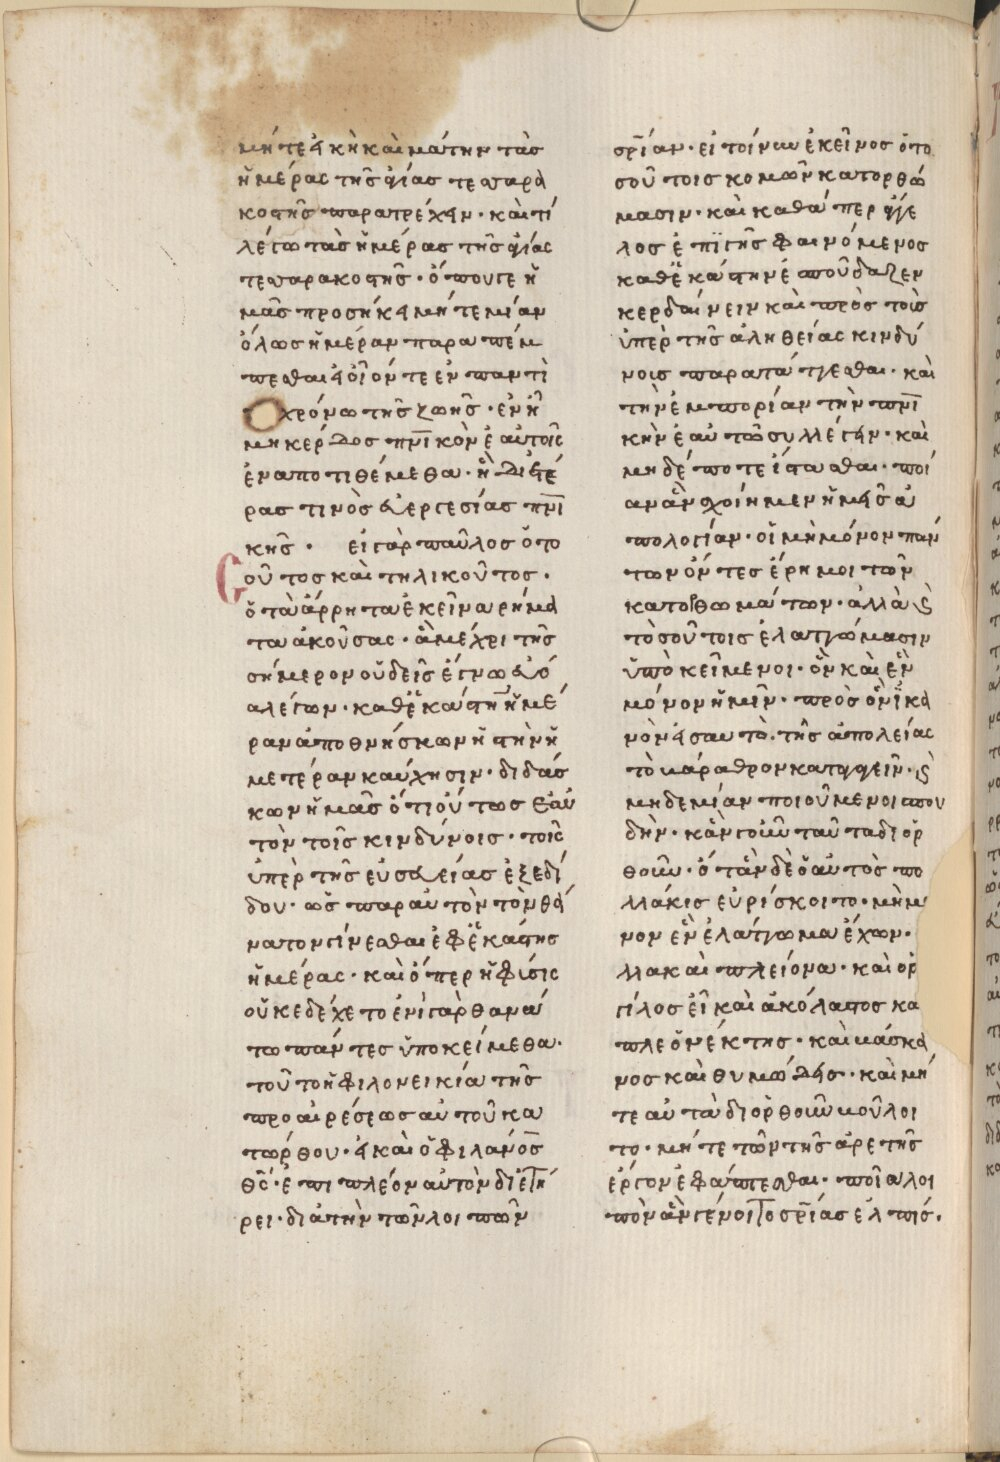 μήτε εἰκῆ καὶ μάτην τὰς
ἡμέρας τῆς ἁγίας τεσσαρα
κοστῆς παρατρέχειν· καὶ τί
λέγω τὰς ἡμέρας τῆς ἁγίας
τεσσαρακοστῆς· ὅπου γε ἡ
μᾶς προσήκει μήτε μίαν
ὅλως ἡμέραν παραπέμ
πεσθαι εἰ οἷόν τε ἐν παντὶ
χρόνω τῆς ζωῆς· ἐν ἧ
μὴ κέρδος πνικὸν ἑαυτοῖς
ἐναποτιθέμεθα· ἢ δι ἑτέ
ρας τινὸς ἐργεσίας πνι
κῆς· εἰ γὰρ παῦλος ὁ το
οῦτος καὶ τηλικοῦτος·
ὁ τὰ ἄρρητα ἐκεῖνα ρήμα
τα ἀκούσας· ἃ μέχρι τῆς
σήμερον οὐδεὶς ἔγνω εὐα
λέγων· καθεκάστην ἡμέ
ραν ἀποθνήσκω νὴ τὴν ἡ
μετέραν καύχησιν· διδάσ
κων ἡμᾶς ὅτι οὕτως ἑαυ
τὸν τοῖς κινδύνοις· τοῖς
ὑπὲρ τῆς εὐσεβείας ἐξεδί
δου· ὡς παρ αὐτὸν τὸν θά
νατον γίνεσθαι ἐφ ἑκάστης
ἡμέρας· καὶ ὅπερ ἡ φύσις
οὐκ εδέχετο ἑνὶ γὰρ θανά
τω πάντες ὑποκείμεθα·
τοῦτο ἡ φιλονεικία τῆς
προαιρέσεως αὐτοῦ κα
τώρθου· εἰ καὶ ὁ φιλανος
θς· ἐπι πλέον αὐτὸν διετή
ρει· διὰ τὴν τῶν λοιπῶν
σρίαν· εἰ τοίνυν ἐκεῖνος ὁ το
σούτοις κομῶν κατορθώ
μασιν· καὶ καθάπερ ἄγγε
λος ἐπὶ γῆς φαινόμενος
καθεκάστην ἐσπούδαζεν
κερδαίνειν καὶ πρὸς τοὺς
ὑπὲρ τῆς ἀληθείας κινδύ
νοις παρατάττεσθαι· καὶ
τὴν ἐμπορίαν τὴν πνι
κὴν ἑαυτῶ συλλέγειν· καὶ
μηδέποτε ἵστασθαι· ποί
αν ἂν σχοίημεν ἡμεῖς ἀ
πολογίαν· οἱ μὴ μόνον πάν
των ὄντες ἔρημοι τῶν
κατορθωμάτων· ἀλλὰ καὶ
τοσούτοις ἐλαττώμασιν
ὑποκείμενοι· ὧν καὶ ἓν
μόνον ἡμῖν· πρὸς ὃν ἱκα
νὸν εἰς αυτὸ· τῆς ἀπολείας
τὸ βάραθρον καταγαγεῖν· καὶ
μηδεμίαν ποιούμενοι σπου
δὴν· κἂν γοῦν ταῦτα διορ
θοῦν· ὅταν δὲ ὁ αὐτὸς πο
λλάκις εὑρίσκοιτο· μὴ μ
νον ἓν ἐλάττωμα ἔχων·
λλα καὶ πλείονα· καὶ ὀρ
γίλος εἴη καὶ ἀκόλαστος κα
πλεονέκτης· καὶ βάσκα
νος καὶ θυμώδης· καὶ μή
τε αὐτὰ διορθοῦν βούλοι
το· μήτε τῶν τῆς ἀρετῆς
ἔργον ἐφάπτεσθαι· ποία λοι
πὸν ἂν γένοιτο σρίας ἐλπίς·